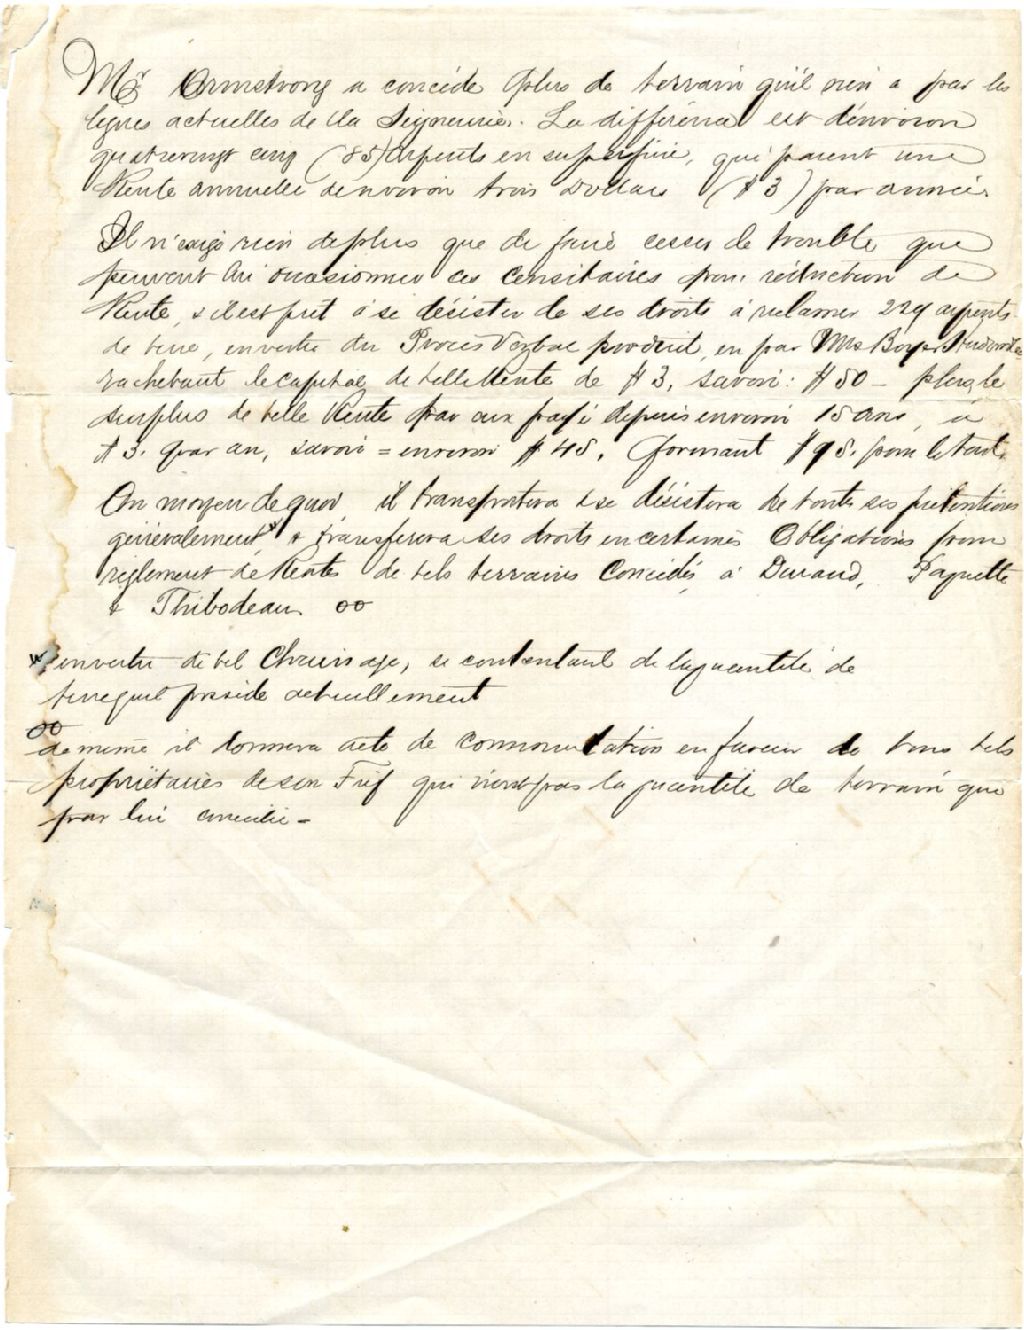 Mr Armstrong a concédé plus de terrain qu'il n'en a par les
lignes actuelles de la Seigneurie. La différence est d'environ
quatrevingt cinq (85) arpents en superficie, qui paient une
Rente annuelle d'environ trois Dollars ($3) par année.
Il n'exige rien de plus que de faire cesser le trouble que
peuvent lui occasionner ces Censitaires pour réduction de
Rente, & il est prêt à se désister de ses droits à réclamer 229 arpents
de terre, en vertu du Procès Verbal produit, en par Mrs Boyer
rachetant le capital de telle Rente de $3, savoir: $50 - plus, le
surplus de telle Rente par eux payé depuis environ 15 ans, à
$3. par an, savoir = environ $45, formant $95. pour le tout.
Au moyen de quoi, il transportera & se désistera de toutes ses prétentions
généralement, * & transférera ses droits en certaines Obligations pour
règlement de Rentes de tels terrains Concédés, à Durand, Paquette
& Thibodeau. oo
* en vertu de tel Chainage, se contentant de la quantité de
terre qu'il possède actuellement
oo
de même il donnera acte de commutation en faveur de tous tels
propriétaires de son Fief qui n'ont pas la quantité de terrain que
par lui concédé -